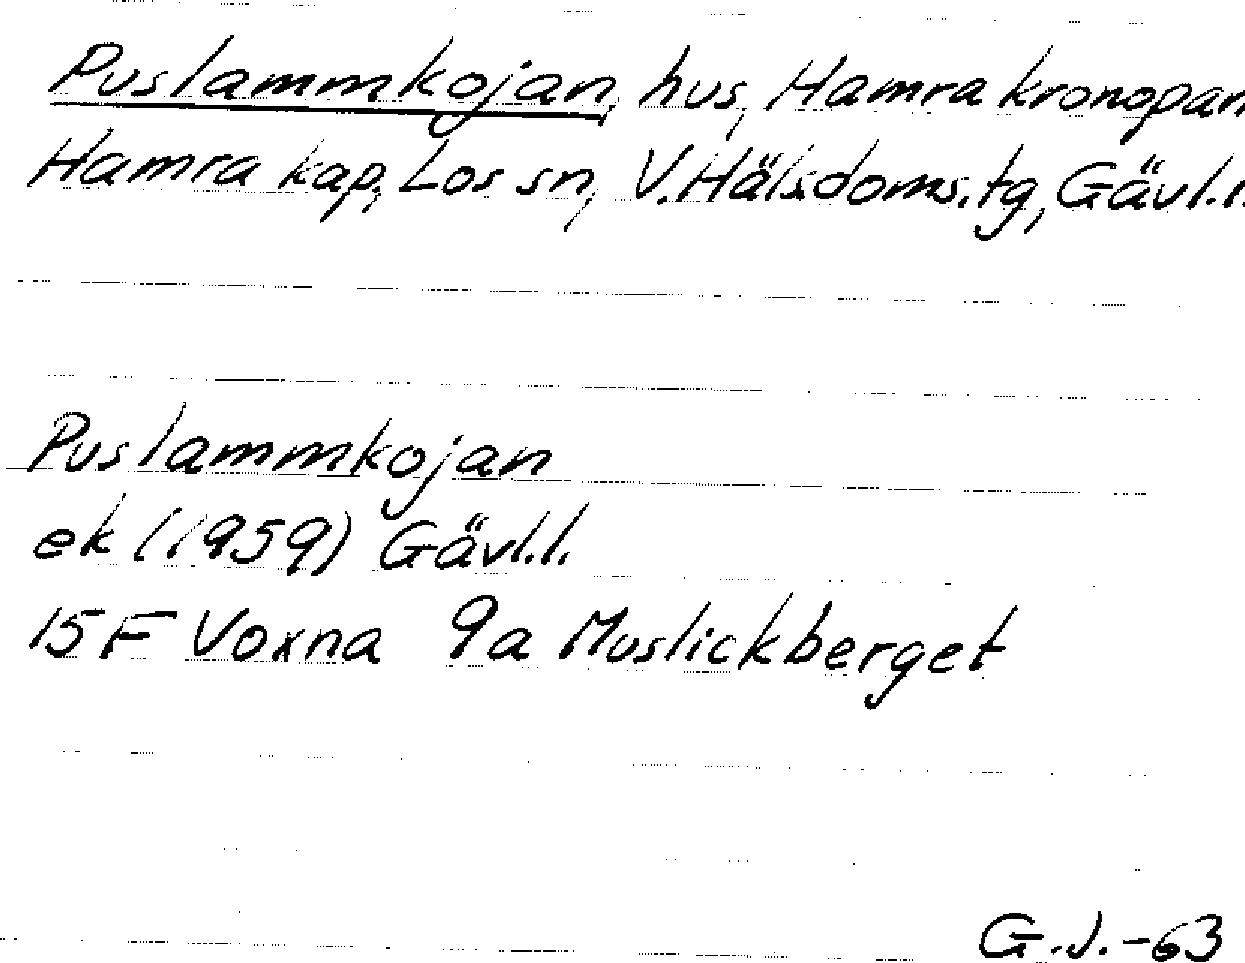 Puslammkojan, hus, Hamra kronopar
Hamra kap, Los sn, V. Hälsdoms.tg, Gävl.l.
Puslammkojan
ek (1959) Gävl.l.
15F Voxna 9a Muslickberget
G.J. -63